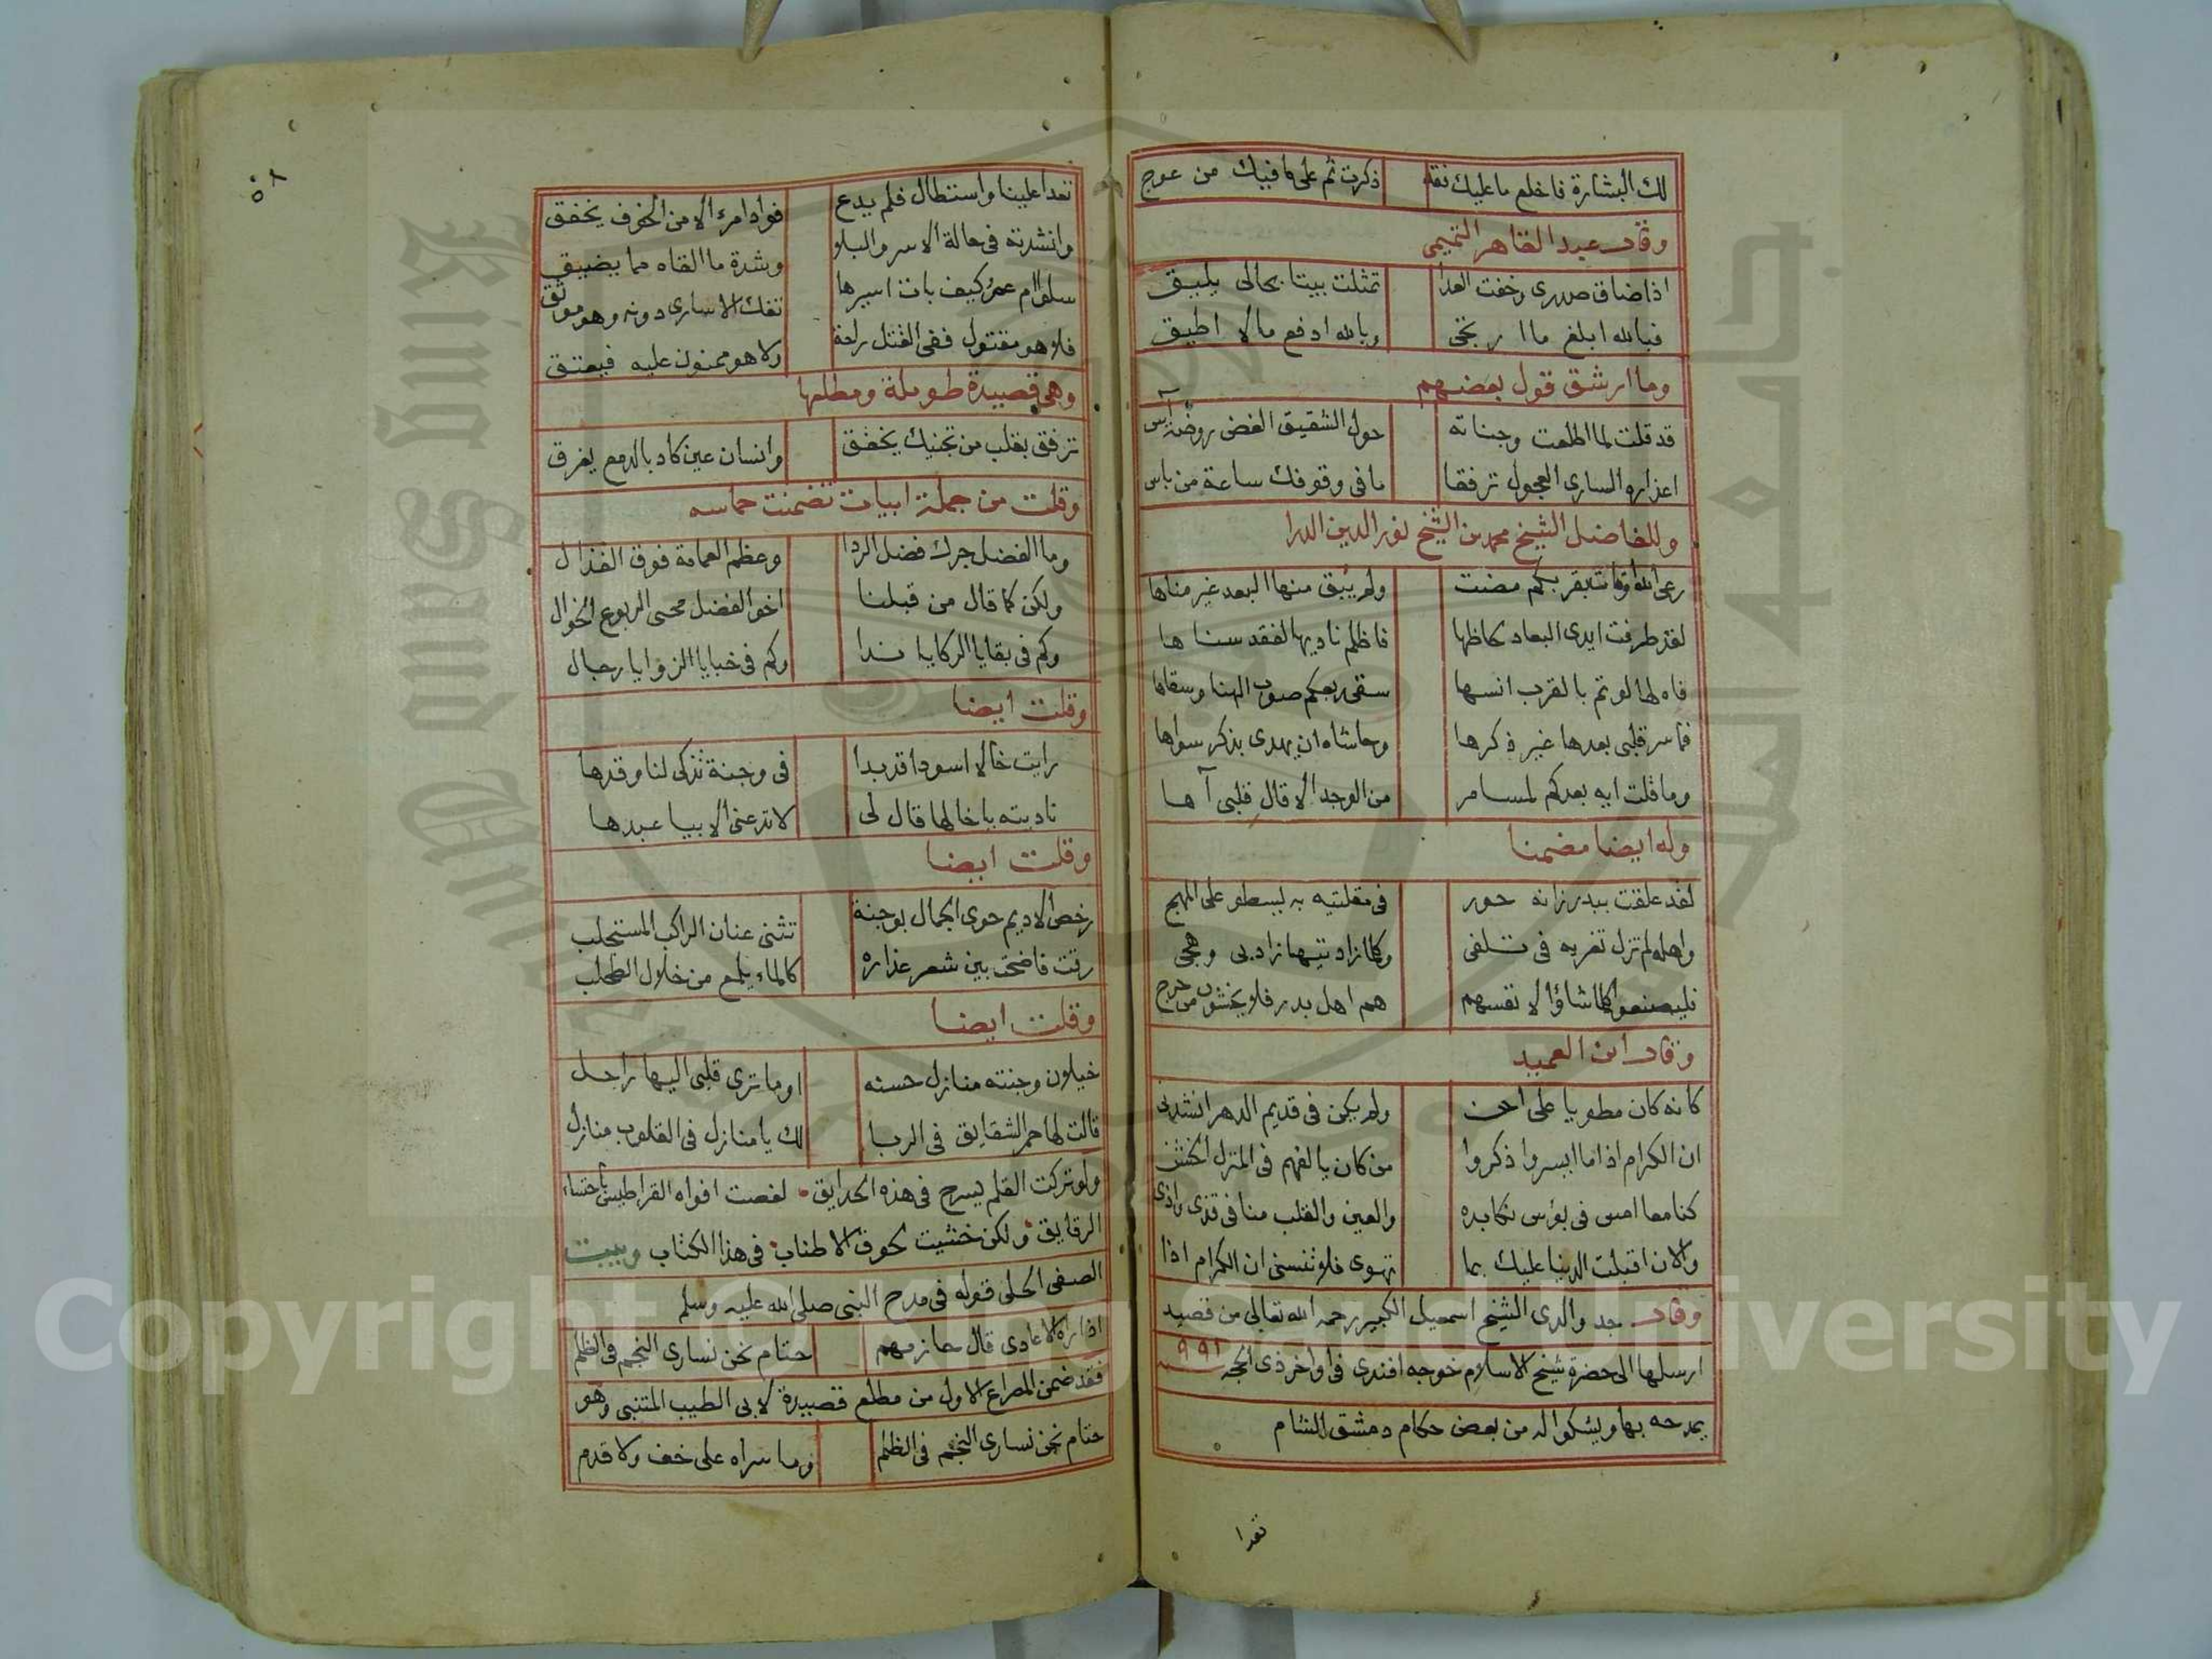 لك البشارة فاخلع ما عليك فقد ذكرت ثم على ما فيك من عوج
وقال عبد القاهر التميمي
اذا ضاق صدري وخفت العدا تمثلت بيتا بحالي يليق
فبالله ابلغ ما ارتجى وبالله ادفع ما لا اطيق
وما ارشق قول بعضهم
قد قلت لما اطلعت وجناته حول الشقيق الغض روضة آس
اعذاره الساري العجول ترفقا ما في وقوفك ساعة من باس
وللفاضل الشيخ محمد بن الشيخ نور الدين الدرا
رعى الله اوقاتا بقربكم مضت ولم يبق منها البعد غير مناها
لقد طرفت ايدي البعاد لحاظها فاظلم ناديها لفقد سناها
فاه لها لو تم بالقرب انسها سقى ربعكم صوب الهنا وسقاها
فما سر قلبي بعدها غير ذكرها وحاشاه ان يهدى بذكر سواها
وما قلت ايه بعدكم لمسامر من الوجد الا قال قلبي آها
وله ايضا مضمنا
لقد علقت ببدر زانه حور في مقلتيه به يسطو على المهج
واهله لم تزل تغريه في تلفى وكلما زاد تيها زاد بي وهجي
فليصنعوا كلما شاؤا لانفسهم هم اهل بدر فلا يخشون من حرج
وقال ابن العميد
كانه كان مطويا على احن ولم يكن في قديم الدهر انشدني
ان الكرام اذا ما ايسروا ذكروا من كان يالفهم في المنزل الخشن
كنا معا امس في بؤس نكابده والعين والقلب منا في قذى واذى
والان اقبلت الدنيا عليك بما تهوى فلا تنسنى ان الكرام اذا
وقال جد والدي الشيخ اسمعيل الكبير رحمه الله تعالى من قصيد
ارسلها الى حضرة شيخ الاسلام خوجه افندي في اواخر ذي الحجه سنه ٩٩١
يمدحه بها ويشكو اله من بعض حكام دمشق الشام
تعدا
٥٨
تعدا علينا واستطال فلم يدع فواد امرء الا من الخوف يخفق
وانشدته في حالة الاسر والبلا وشدة ما القاه مما يضيق
سلو ام عمرو كيف بات اسيرها تفك الاسارى دونه وهو موثق
فلا هو مقتول ففي القتل راحة ولا هو ممنون عليه فيعتق
وهي قصيدة طويلة ومطلعها
ترفق بقلب من تجنيك يخفق وانسان عين كاد بالدمع يغرق
وقلت من جملة ابيات تضمنت حماسه
وما الفضل جرك فضل الردا وعظم العمامة فوق القذال
ولكن كما قال من قبلنا اخو الفضل محيى الربوع الخوال
وكم في بقايا الركايا ندا وكم في خبايا الزوايا رجال
وقلت ايضا
رايت خالا اسودا قد بدا في وجنة تذكى لنا وقدها
ناديته يا خالها قال لي لا تدعنى الا بيا عبدها
وقلت ايضا
رخص الاديم حوى الجمال بوجنة تثنى عنان الراكب المستحلب
رقت فاضحت بين شعر عذاره كالماء يلمع من خلال الطحلب
وقلت ايضا
خيلان وجنته منازل حسنه او ما ترى قلبي اليها راحل
قالت لها حمر الشقايق في الربا لك يا منازل في القلوب منازل
ولو تركت القلم يسرح في هذه الحدايق لغصت افواه القراطيس باحتساء
الرقايق ولكن خشيت لحوق الاطناب في هذا الكتاب وبيت
الصفي الحلي قوله في مدح النبي صلى الله عليه وسلم
اذا راه الاعادي قال حازمهم حتام نحن نساري النجم في الظلم
فقد ضمن المصراع الاول من مطلع قصيدة لابي الطيب المتنبي وهو
حتام نحن نساري النجم في الظلم وما سراه على خف ولا قدم
King Saud University
Copyright © King Saud University